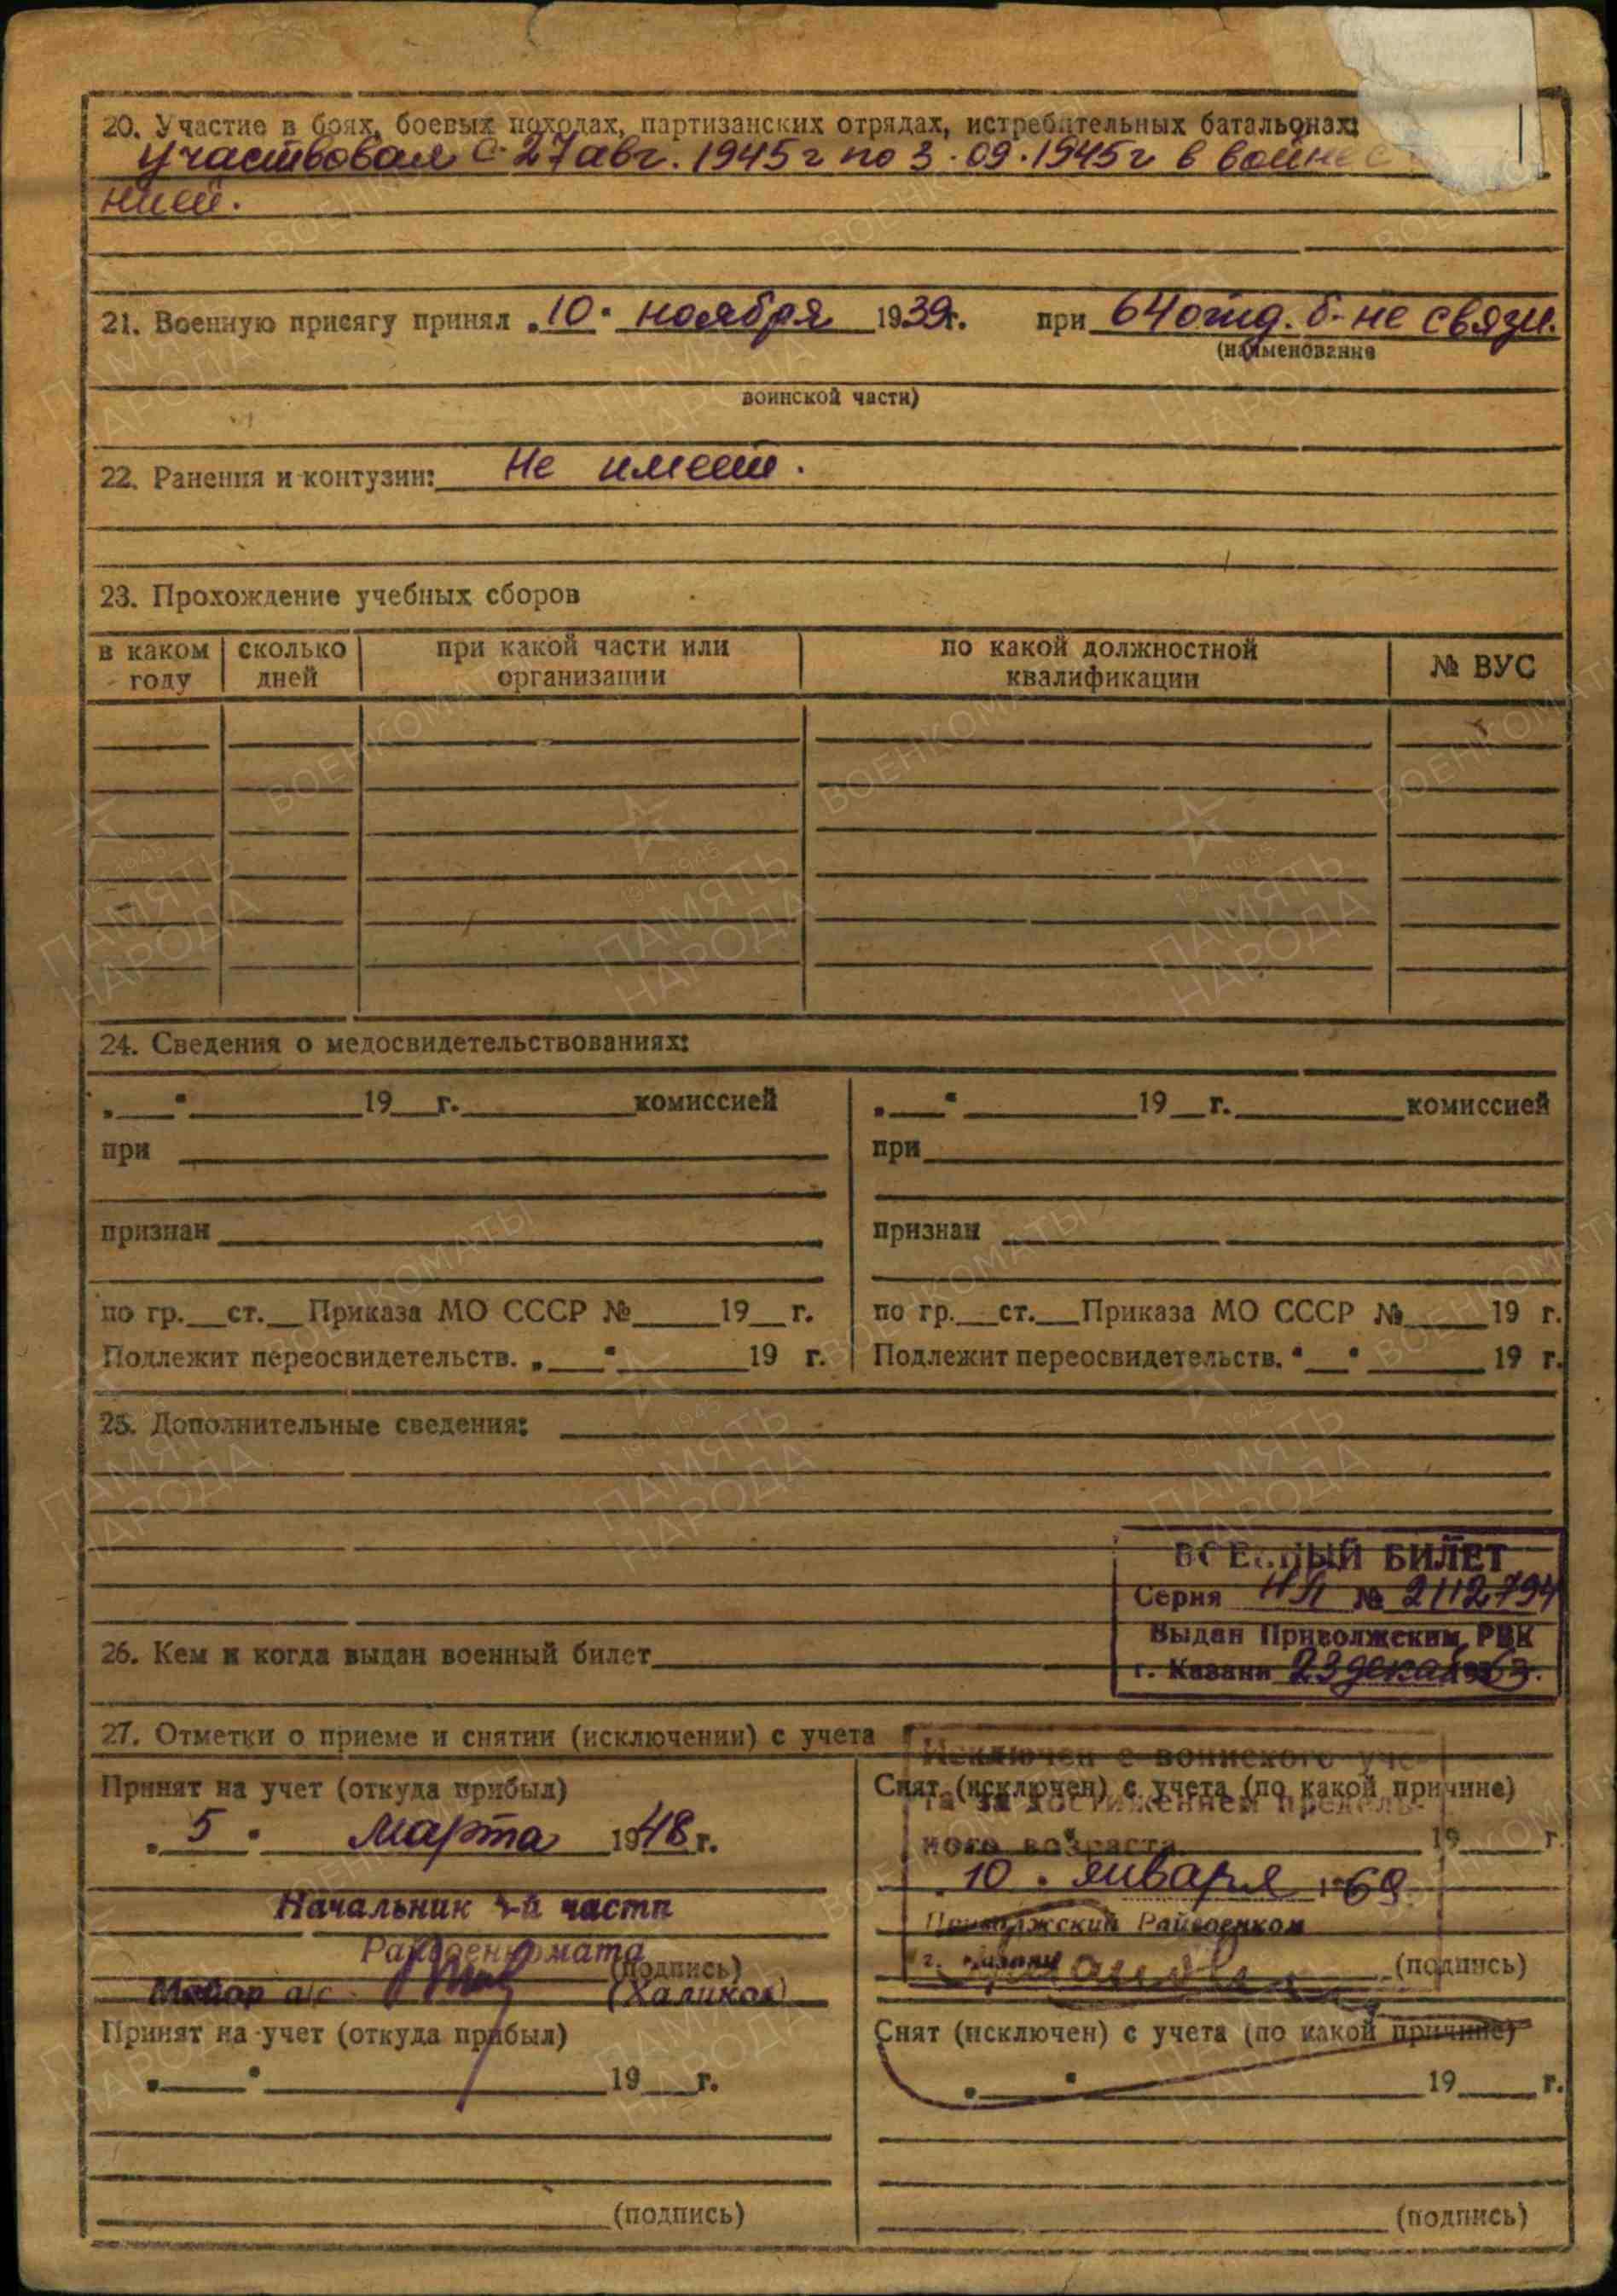 20. Участие в боях, боевых походах, партизанских отрядах, истребительных батальонах:
участвовал с 27 авг. 1945 г по 3.09.1945 г в войне с
нией.
21. Военную присягу принял „10" ноября 1939г. при 64 отд. б-не связи.
(наименование
воинской части)
22. Ранения и контузии: Не имеет.
23. Прохождение учебных сборов
в каком году сколько дней при какой части или организации по какой должностной квалификации № ВУС
24. Сведения о медосвидетельствованиях:
„__" 19__г. комиссией „__" 19__г. комиссией
при при
признан признан
по гр.__ст.__Приказа МО СССР №__19__г. по гр.__ст.__Приказа МО СССР №__19 г.
Подлежит переосвидетельств. „__" 19 г. Подлежит переосвидетельств. "__" 19 г.
25. Дополнительные сведения:
ВОЕННЫЙ БИЛЕТ
Серия НЛ № 2112794
Выдан Приволжским РВК
26. Кем и когда выдан военный билет
г. Казани 23 декаб 1963.
27. Отметки о приеме и снятии (исключении) с учета
Исключен с воинского уче-
Принят на учет (откуда прибыл) Снят (исключен) с учета (по какой причине)
та за достижением предель-
„5" марта 1948 г.
ного возраста 19 г.
10 января 1969.
Начальник 4-й части
Приволжский Райвоенком
Райвоенкомата
(подпись) г. Казани (подпись)
Майор а/с (Халиков)
Принят на учет (откуда прибыл) Снят (исключен) с учета (по какой причине)
„__" 19__г. „__" 19__г.
(подпись) (подпись)
ПАМЯТЬ НАРОДА
1941 1945
ВОЕНКОМАТЫ